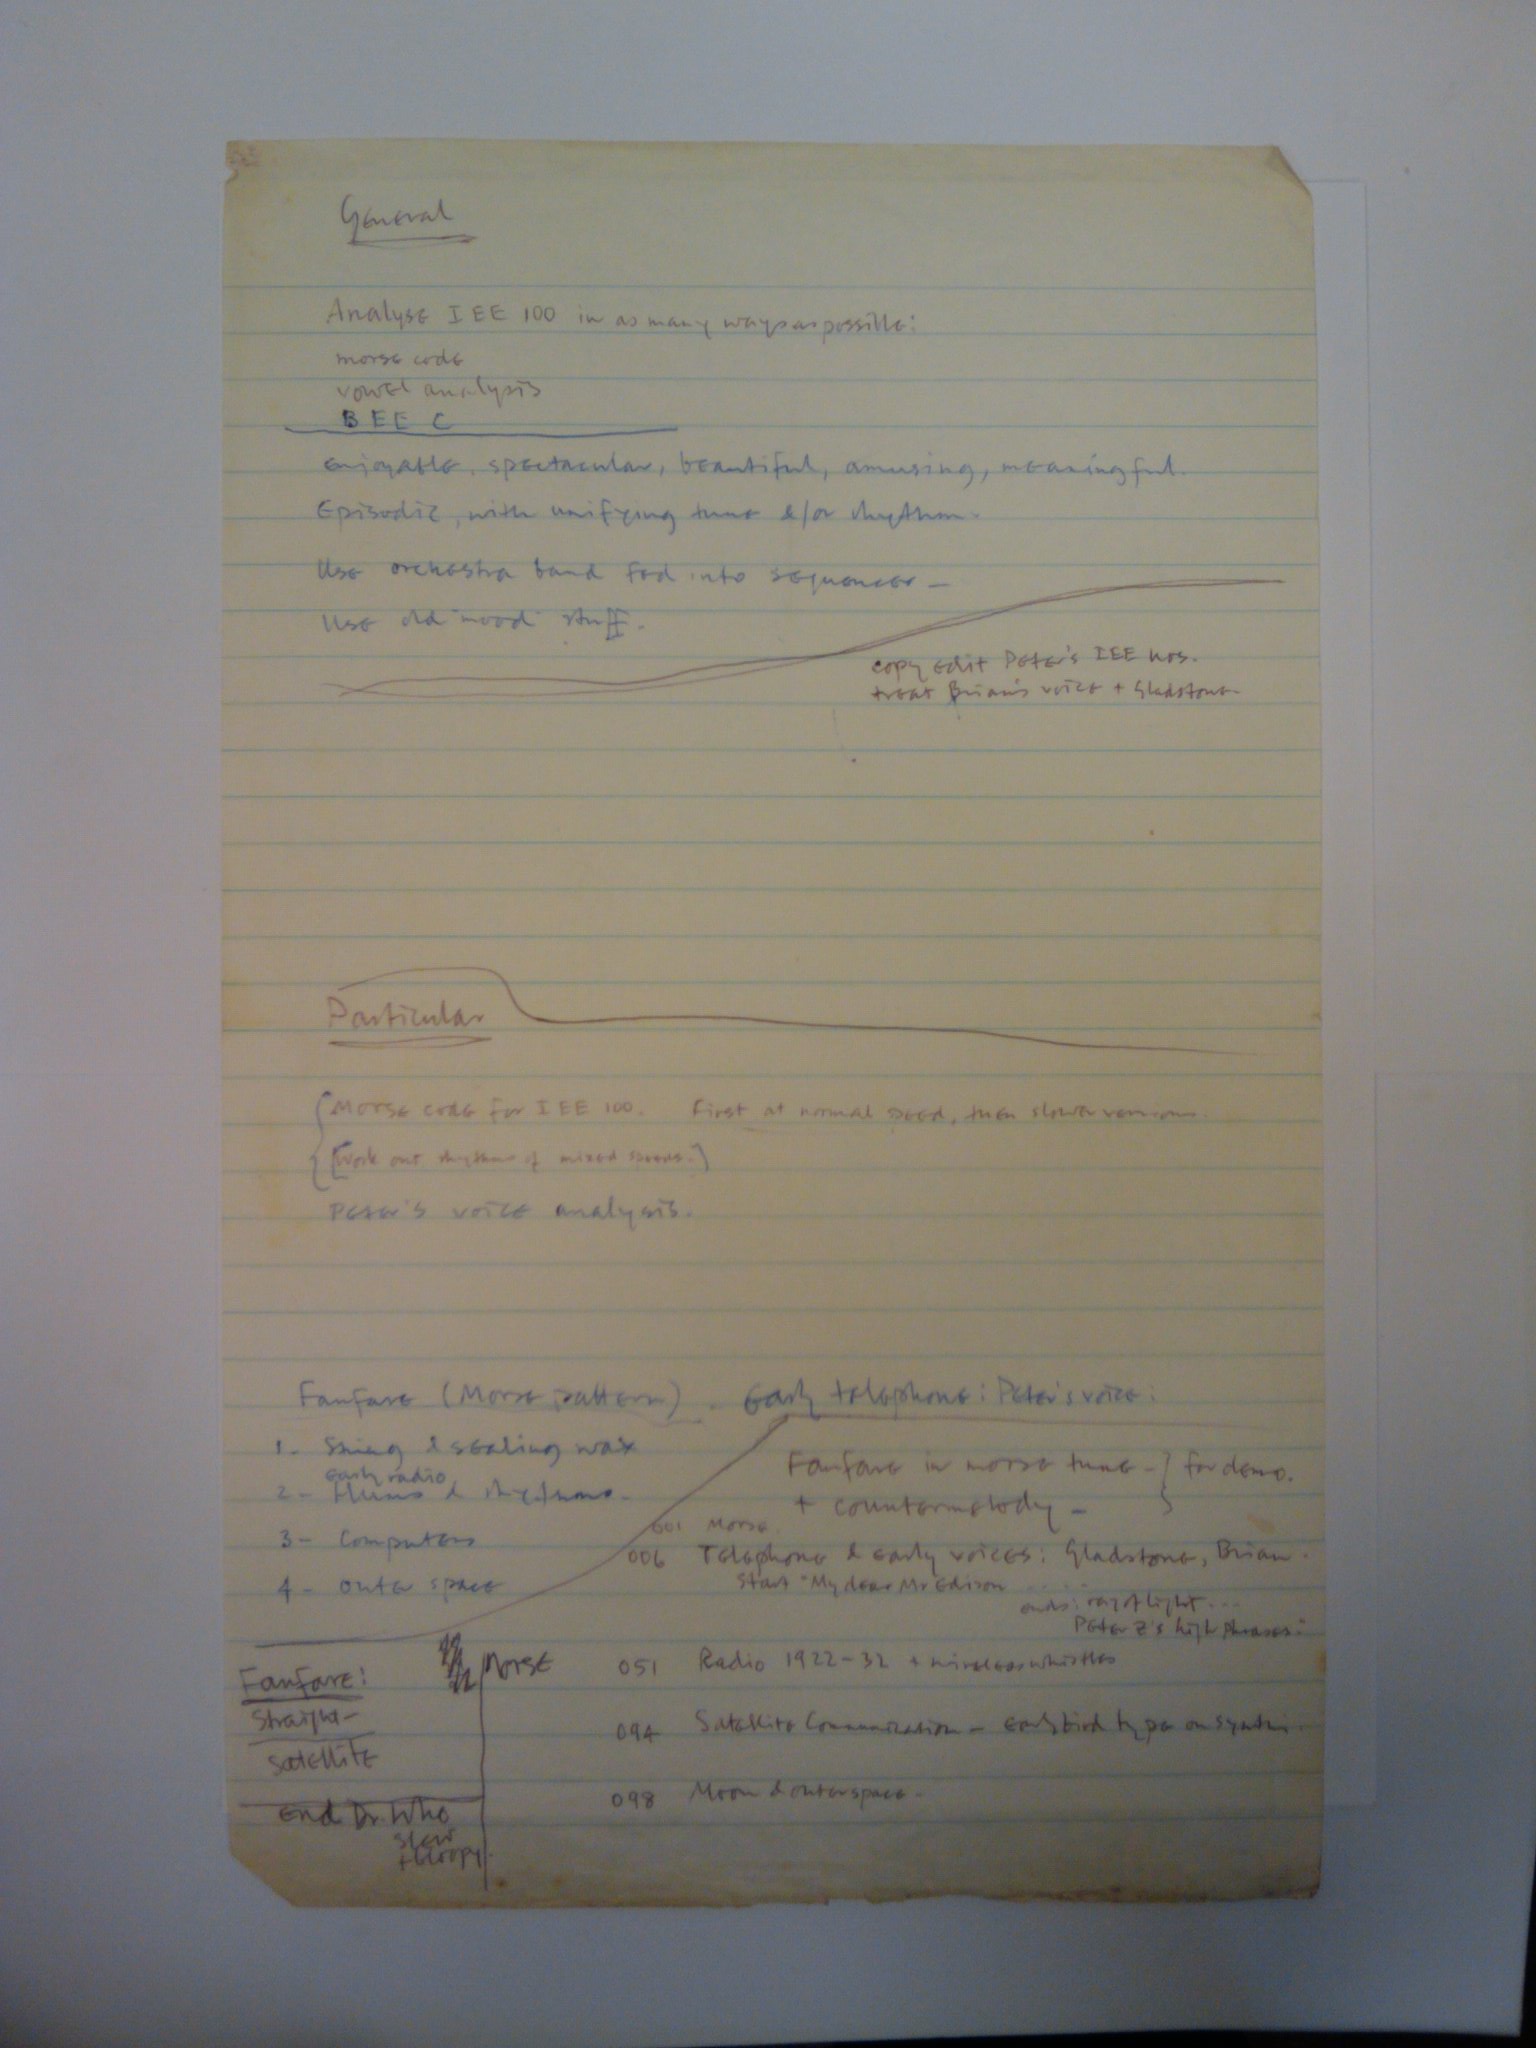 General
Analyse IEE 100 in as many ways as possible:
morse code
vowel analysis
BEE C
enjoyable, spectacular, beautiful, amusing, meaningful.
Episodic, with unifying tune &/or rhythm.
Use orchestra band fed into sequencer —
Use old "mood" stuff.
copy edit Peter's IEE nos.
treat Brian's voice + Gladstone
Particular
Morse code for IEE 100. First at normal speed, then slower versions.
[Work out rhythms of mixed speeds.]
Peter's voice analysis.
Fanfare (Morse pattern). Early telephone: Peter's voice:
1 - String & sealing wax
early radio
2 - Hums & rhythms.
3 - Computers
4 - outer space
Fanfare in morse tune - } for demo.
+ countermelody -
001 Morse
006 Telephone & early voices: Gladstone, Brian.
Start "My dear Mr Edison .....
ends: ray of light ...
Peter Z's high phrases:
Fanfare:
Straight -
Satellite
End Dr Who
slow
+ bloopy.
Morse
051 Radio 1922-32 + wireless whistles
094 Satellite Communication - early bird type on synthi.
098 Moon & outerspace.